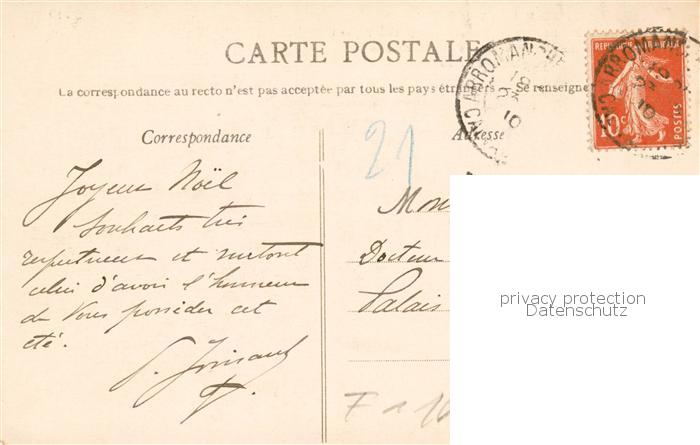 CARTE POSTALE
La correspondance au recto n'est pas acceptée par tous les pays étrangers Se renseigner
Correspondance
Adresse
21
Joyeux Noël
Souhaits très
respectueux et surtout
celui d'avoir l'honneur
de Vous posséder cet
été.
Docteur
Palais
REPUBLIQUE FRANÇAISE
10c
POSTES
ARROMANCHES
CALVADOS
10
privacy protection
Datenschutz